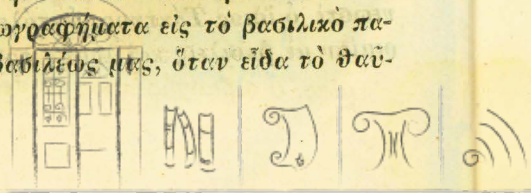 ωγραφήματα εἰς τὸ βασιλικὸ πα-
βασιλέως μας, ὅταν εἶδα τὸ θαῦ-